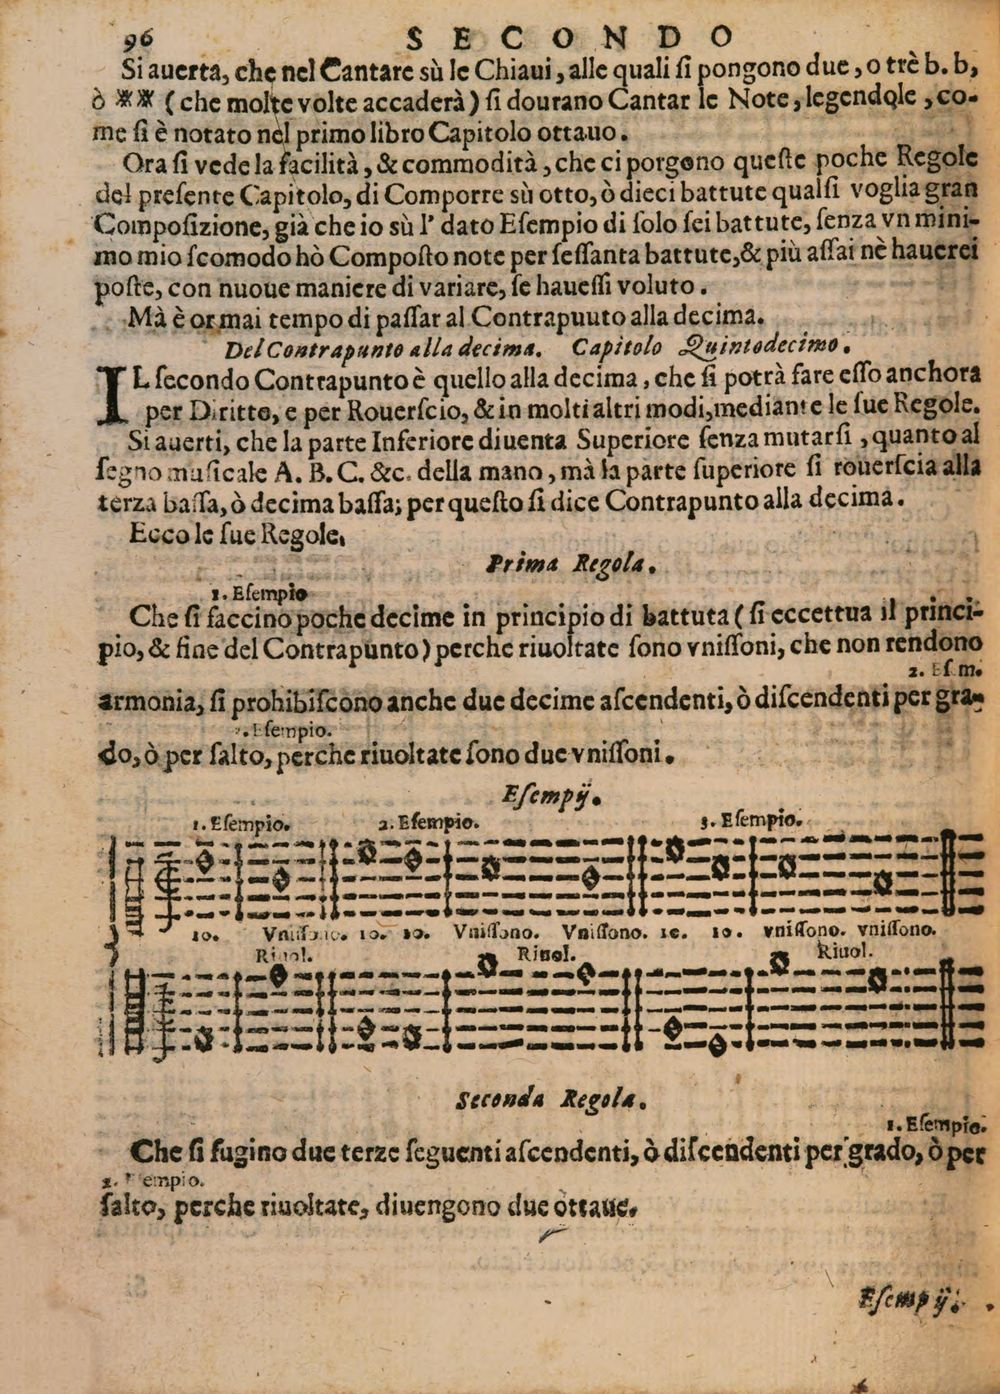 96 SECONDO
Si auerta, che nel Cantare sù le Chiaui, alle quali ſi pongono due, o trè b. b,
ò ※※ (che molte volte accaderà) ſi dourano Cantar le Note, legendole, co-
me ſi è notato nel primo libro Capitolo ottauo.
Ora ſi vede la facilità, & commodità, che ci porgono queſte poche Regole
del preſente Capitolo, di Comporre sù otto, ò dieci battute qualſi voglia gran
Compoſizione, già che io sù l' dato Eſempio di ſolo ſei battute, ſenza vn mini-
mo mio ſcomodo hò Compoſto note per ſeſſanta battute, & più aſſai nè hauerei
poſte, con nuoue maniere di variare, ſe haueſſi voluto.
Mà è ormai tempo di paſſar al Contrapuuto alla decima.
Del Contrapunto alla decima. Capitolo Quintodecimo.
IL ſecondo Contrapunto è quello alla decima, che ſi potrà fare eſſo anchora
per Diritto, e per Rouerſcio, & in molti altri modi, mediante le ſue Regole.
Si auerti, che la parte Inferiore diuenta Superiore ſenza mutarſi, quanto al
ſegno muſicale A. B. C. &c. della mano, mà la parte ſuperiore ſi rouerſcia alla
terza baſſa, ò decima baſſa; per queſto ſi dice Contrapunto alla decima.
Ecco le ſue Regole,
Prima Regola.
1. Eſempio
Che ſi faccino poche decime in principio di battuta (ſi eccettua il princi-
pio, & fine del Contrapunto) perche riuoltate ſono vniſſoni, che non rendono
2. Eſ.m.
armonia, ſi prohibiſcono anche due decime aſcendenti, ò diſcendenti per gra-
Eſempio.
do, ò per ſalto, perche riuoltate ſono due vniſſoni.
Eſempij.
1. Eſempio. 2. Eſempio. 3. Eſempio.
10. Vniſſono. 10. 10. Vniſſono. Vniſſono. 10. 10. vniſſono. vniſſono.
Riuol. Riuol. Riuol.
Seconda Regola.
1. Eſempio.
Che ſi fugino due terze ſeguenti aſcendenti, ò diſcendenti per grado, ò per
2. Eſempio.
ſalto, perche riuoltate, diuengono due ottaue.
Eſempij.